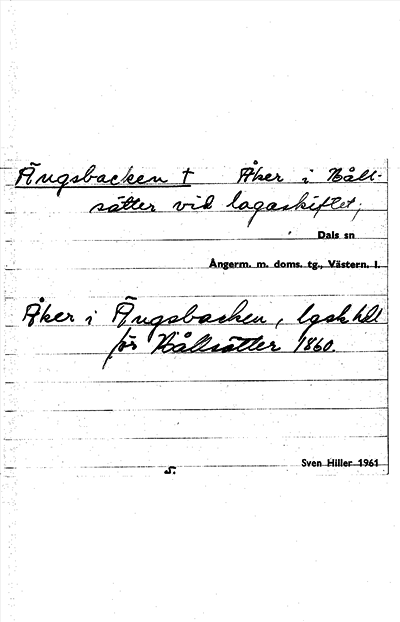 Ängsbacken † Åker i Håll-
sätter vid lagaskiftet;
Dals sn
Ångerm. m. doms. tg., Västern. l.
Åker i Ängsbacken, lgsk hdl
för Hållsätter 1860.
Sven Hiller 1961
s.